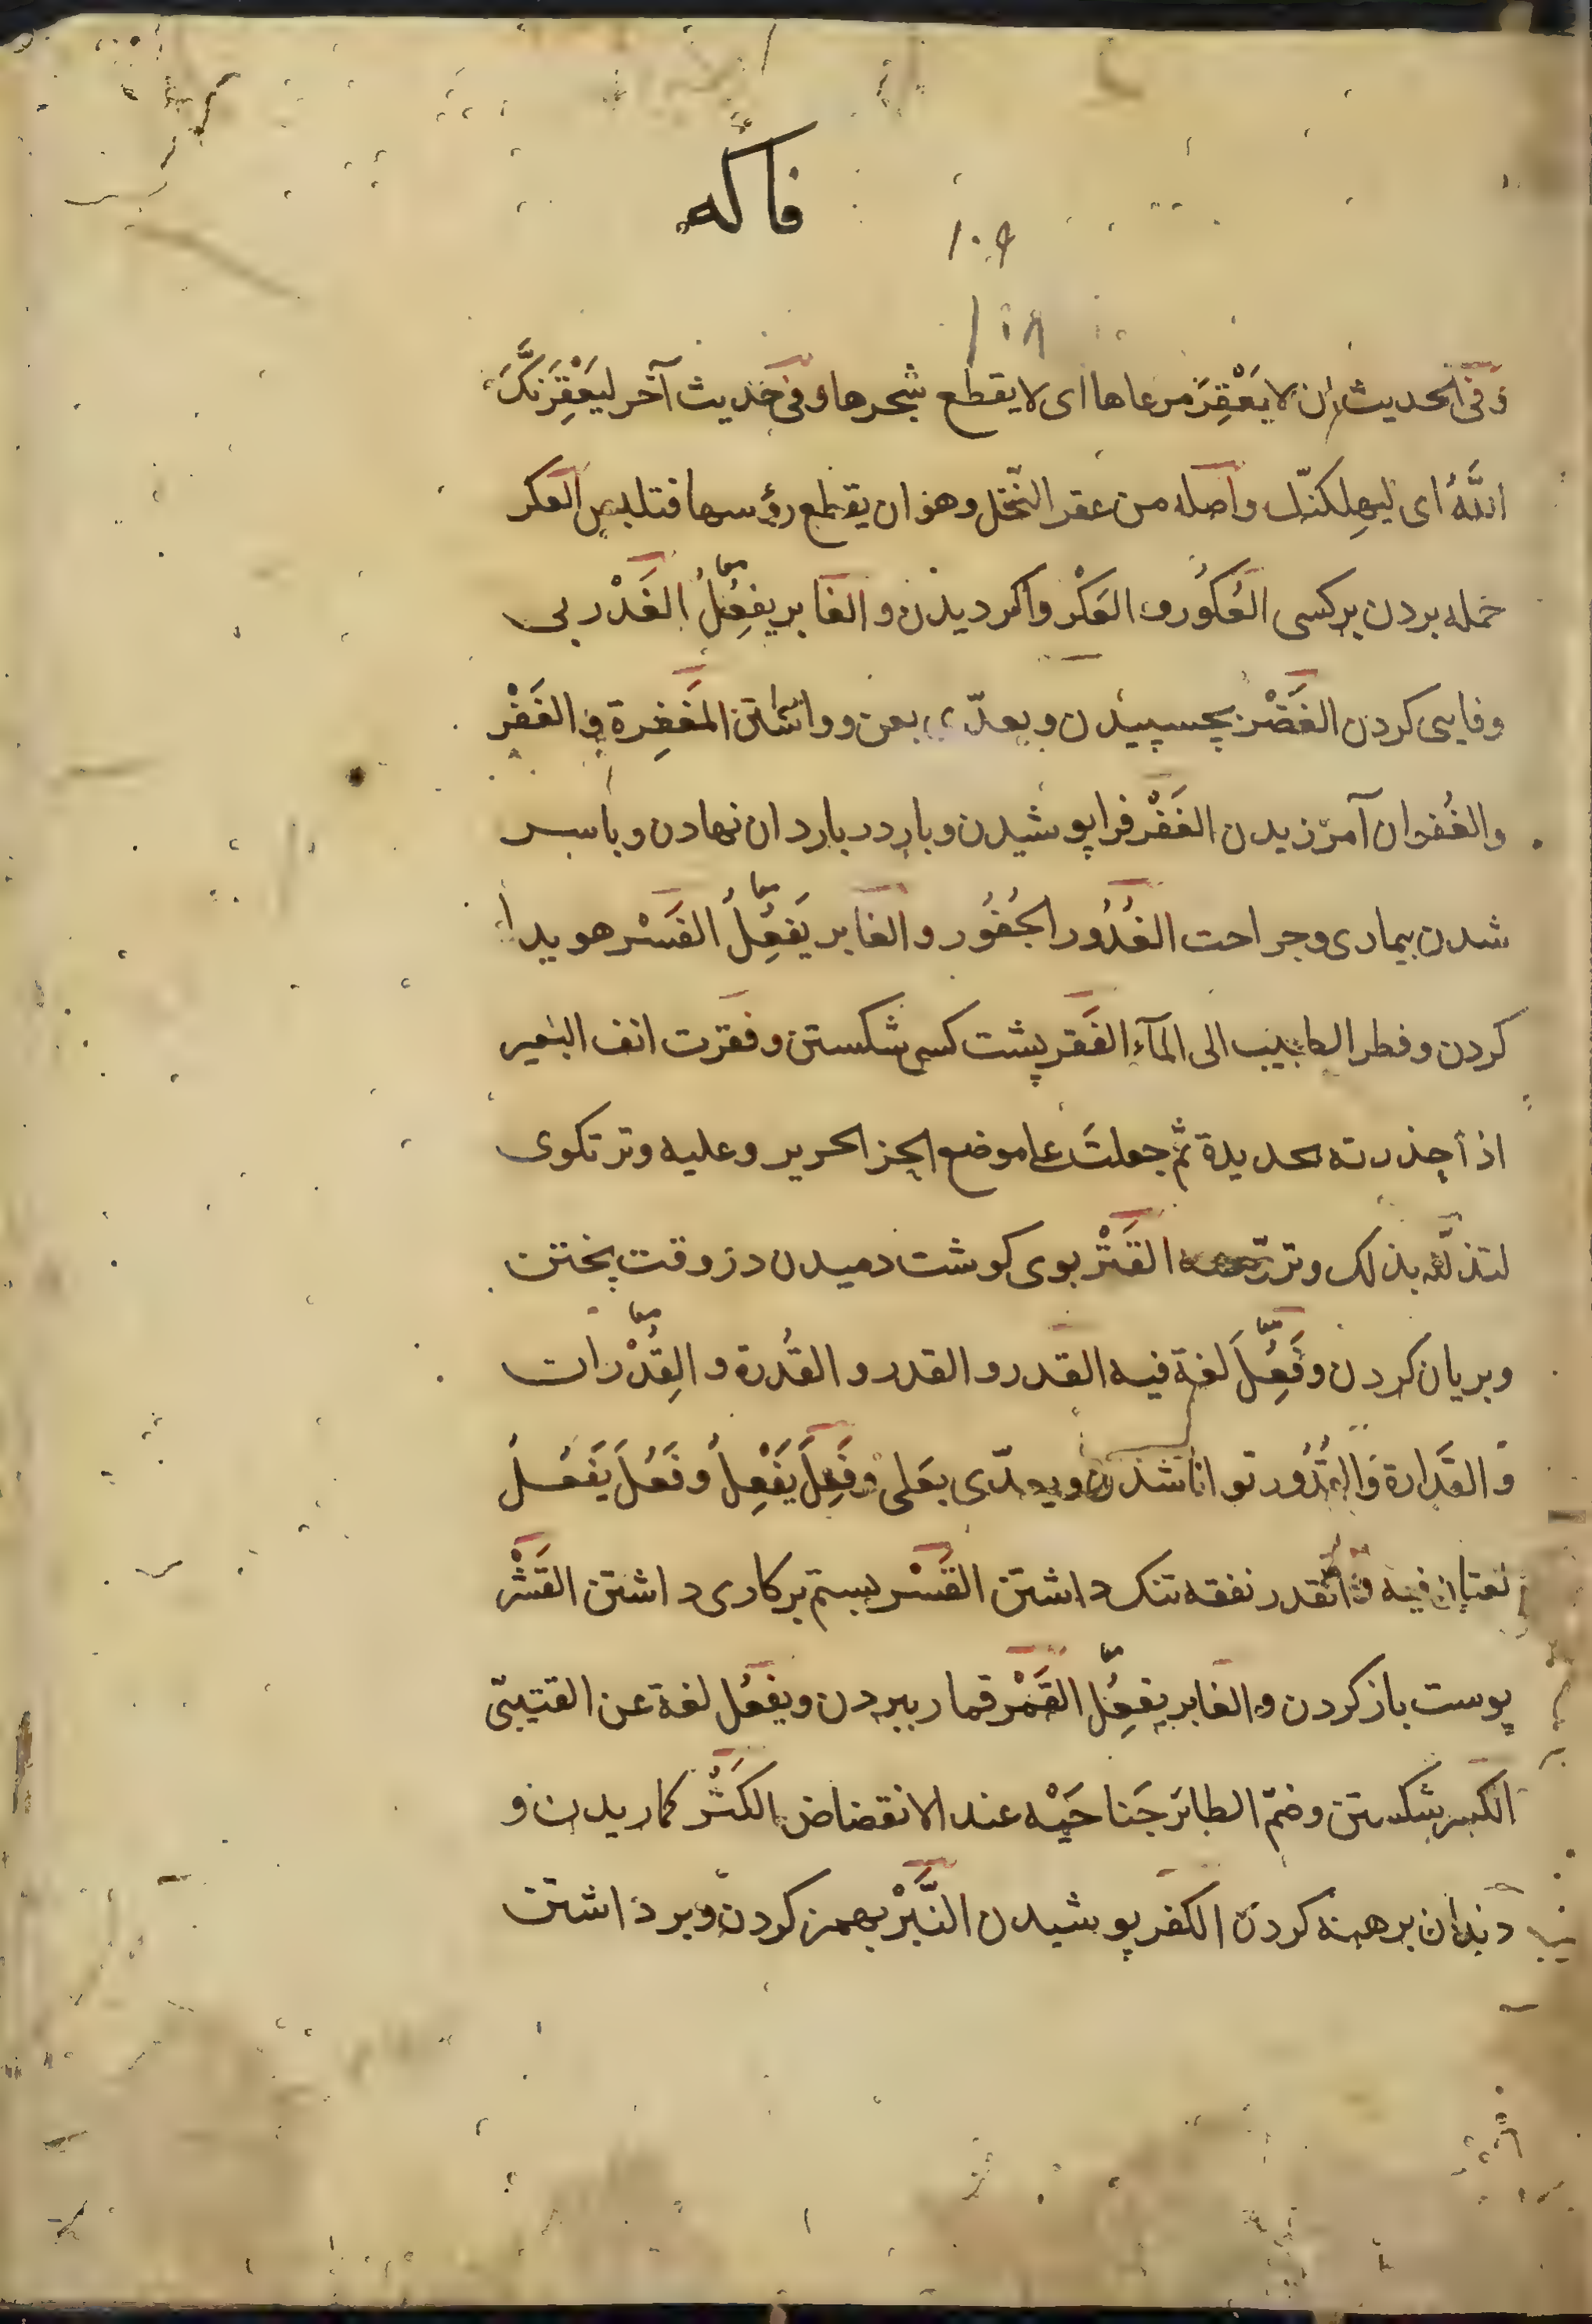 فاكه
١٠٩
١٥٨
وَفى الحديث ان لا يَعْقِرَ مرعاها اى لا يقطع شجرها وفى حديث آخر ليَعْقِرَنَّكَ
اللّٰهُ اى ليهلكنّك واصله من عقر النّخل وهو ان يقطع رؤسها فتلبس العكر
حمله بردن بركسى العُكوُر و العَكْر واكرديدن و الغابر يفعِلُ الغَدْر بى
وفايى كردن الغَضْر بچسپيدن و يعدّى بعن و واداشتن المَغفِرة و الغَفْر
والغُفران آمرزيدن الغَفْر فراپوشيدن و بار در باردان نهادن و باسر
شدن بيمارى و جراحت الفُدُور الجُفُور و الغابر يَفعِلُ الفَسْر هويدا
كردن و فطر الطبيب الى المآء الفَقر پشت كسى شكستن و فقرت انف البعير
اذا جذرته بحديدة ثمّ جعلتَ على موضع الحز الحرير وعليه وتر تكوى
لتذلّله بذلك وترتّضه القَتْر بوى كوشت دميدن در وقت پختن
و بريان كردن و فَعِلَ لغة فيه القدر و القدر و القُدرة و القِدْرات
وَالقَدارة وَالقُدُور توانا شدن و يعدّى بعَلى و فَعِلَ يَفْعِلُ و فَعَلَ يَفعُلُ
لغتان فيه و القدر نفقه تنك داشتن القَسْر بستم بركارى داشتن القَشْر
پوست باز كردن و الغابر يفعِلُ القَمْر قمار ببردن و يفعُل لغة عن القتيبّى
الكسر شكستن و ضمّ الطائر جَناحَيْه عند الانقضاض الكَشْر كماريدن و
دندان برهنه كردن الكفر پوشيدن النَّبْر بهمز كردن و برداشتن